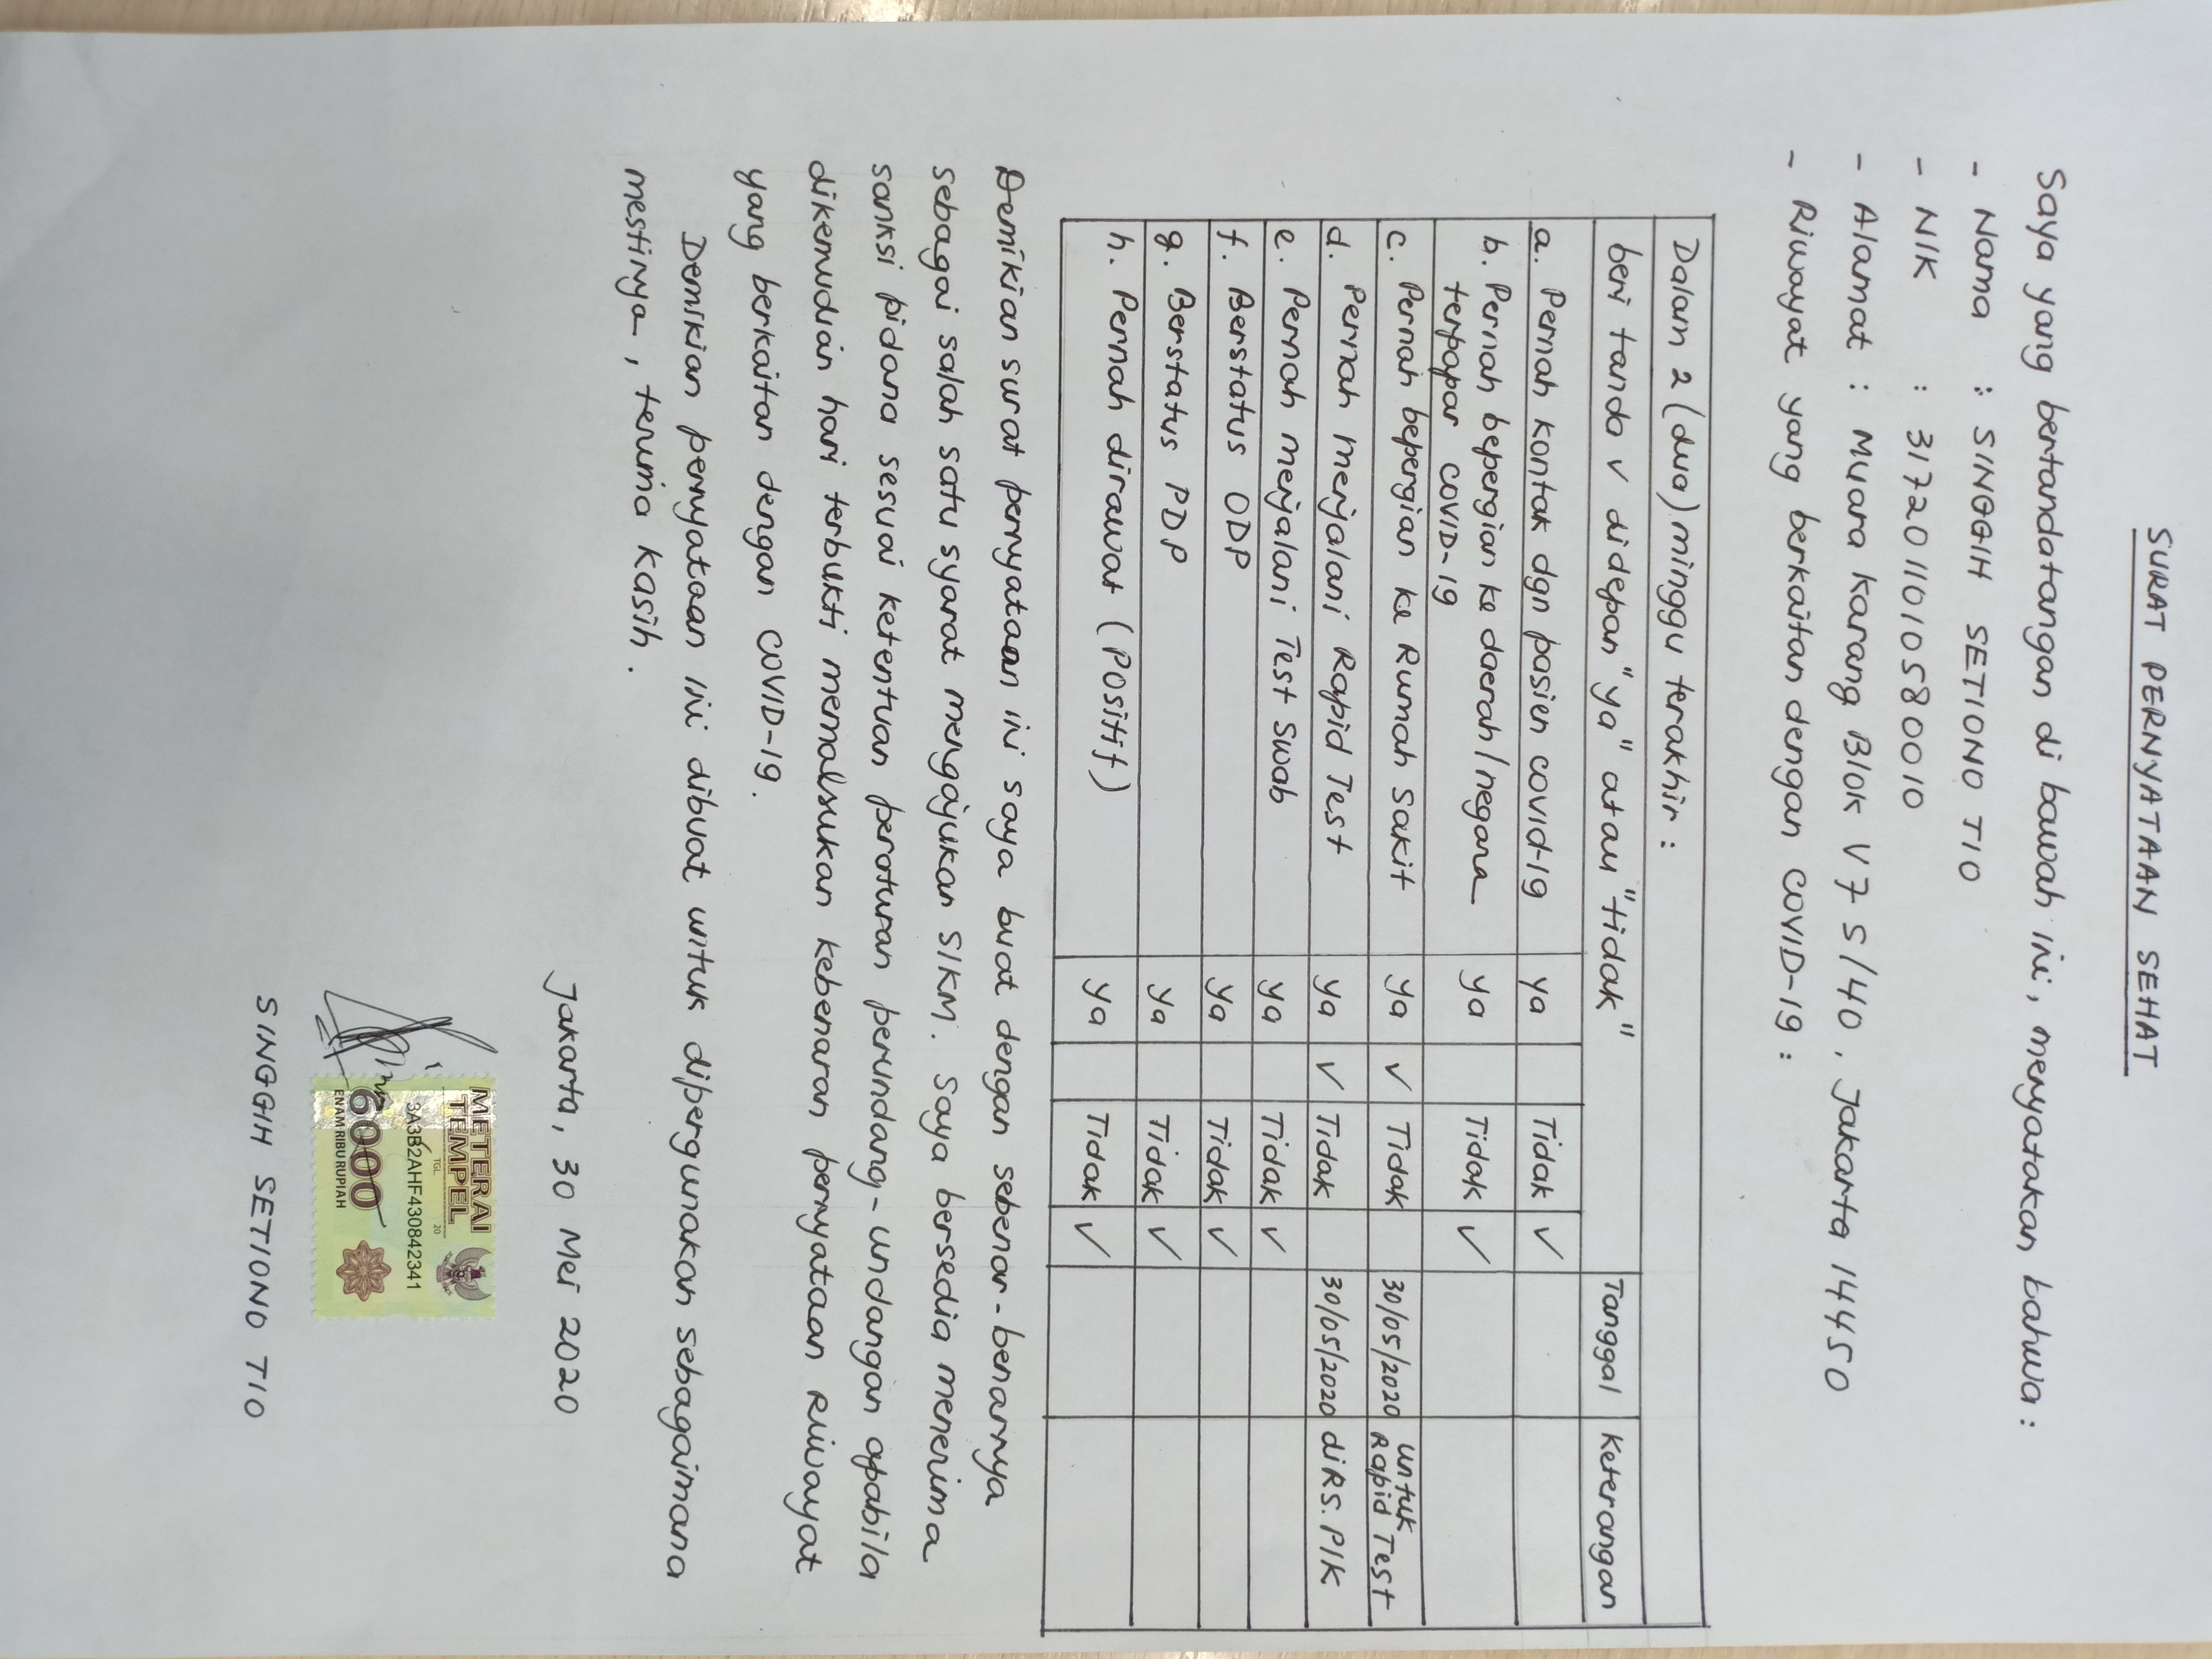 SURAT PERNYATAAN SEHAT
Saya yang bertandatangan di bawah ini, menyatakan bahwa :
- Nama : SINGGIH SETIONO TIO
- NIK : 3172011010580010
- Alamat : Muara Karang Blok V 7 S/40, Jakarta 14450
- Riwayat yang berkaitan dengan COVID-19 :
Dalam 2 (dua) minggu terakhir :
beri tanda ✓ didepan "ya" atau "tidak" Tanggal Keterangan
a. Pernah kontak dgn pasien covid-19 ya Tidak ✓
b. Pernah bepergian ke daerah/negara
terpapar COVID-19 ya Tidak ✓
c. Pernah bepergian ke Rumah Sakit ya ✓ Tidak 30/05/2020 untuk
Rapid Test
d. Pernah menjalani Rapid Test ya ✓ Tidak 30/05/2020 di RS. PIK
e. Pernah menjalani Test Swab ya Tidak ✓
f. Berstatus ODP ya Tidak ✓
g. Berstatus PDP ya Tidak ✓
h. Pernah dirawat (Positif) ya Tidak ✓
Demikian surat pernyataan ini saya buat dengan sebenar-benarnya
sebagai salah satu syarat mengajukan SIKM. Saya bersedia menerima
sanksi pidana sesuai ketentuan peraturan perundang-undangan apabila
dikemudian hari terbukti memalsukan kebenaran pernyataan Riwayat
yang berkaitan dengan COVID-19.
Demikian pernyataan ini dibuat untuk dipergunakan sebagaimana
mestinya, terima kasih.
Jakarta, 30 Mei 2020
METERAI
TEMPEL
TGL. 20
3A3B2AHF430842341
6000
ENAM RIBU RUPIAH
SINGGIH SETIONO TIO